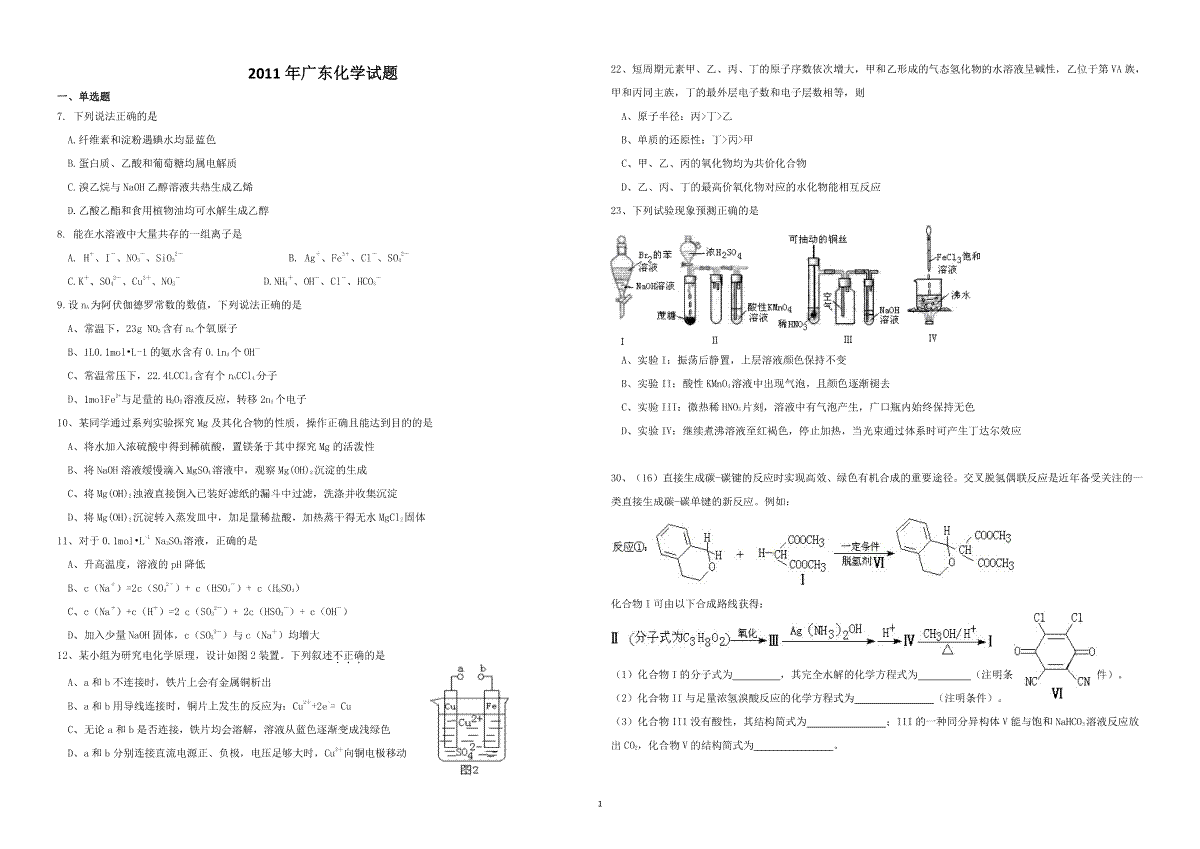 2011 年广东化学试题
一、单选题
7. 下列说法正确的是
A.纤维素和淀粉遇碘水均显蓝色
B.蛋白质、乙酸和葡萄糖均属电解质
C.溴乙烷与 NaOH 乙醇溶液共热生成乙烯
D.乙酸乙酯和食用植物油均可水解生成乙醇
8. 能在水溶液中大量共存的一组离子是
A. H⁺、I⁻、NO₃⁻、SiO₃²⁻ B. Ag⁺、Fe³⁺、Cl⁻、SO₄²⁻
C.K⁺、SO₄²⁻、Cu²⁺、NO₃⁻ D.NH₄⁺、OH⁻、Cl⁻、HCO₃⁻
9.设 nₐ为阿伏伽德罗常数的数值，下列说法正确的是
A、常温下，23g NO₂含有 nₐ个氧原子
B、1L0.1mol•L-1 的氨水含有 0.1nₐ个 OH⁻
C、常温常压下，22.4LCCl₄含有个 nₐCCl₄分子
D、1molFe²⁺与足量的 H₂O₂溶液反应，转移 2nₐ个电子
10、某同学通过系列实验探究 Mg 及其化合物的性质，操作正确且能达到目的的是
A、将水加入浓硫酸中得到稀硫酸，置镁条于其中探究 Mg 的活泼性
B、将 NaOH 溶液缓慢滴入 MgSO₄溶液中，观察 Mg(OH)₂沉淀的生成
C、将 Mg(OH)₂浊液直接倒入已装好滤纸的漏斗中过滤，洗涤并收集沉淀
D、将 Mg(OH)₂沉淀转入蒸发皿中，加足量稀盐酸，加热蒸干得无水 MgCl₂固体
11、对于 0.1mol•L⁻¹ Na₂SO₃溶液，正确的是
A、升高温度，溶液的 pH 降低
B、c（Na⁺）=2c（SO₃²⁻）+ c（HSO₃⁻）+ c（H₂SO₃）
C、c（Na⁺）+c（H⁺）=2 c（SO₃²⁻）+ 2c（HSO₃⁻）+ c（OH⁻）
D、加入少量 NaOH 固体，c（SO₃²⁻）与 c（Na⁺）均增大
12、某小组为研究电化学原理，设计如图 2 装置。下列叙述不正确的是
A、a 和 b 不连接时，铁片上会有金属铜析出
B、a 和 b 用导线连接时，铜片上发生的反应为：Cu²⁺+2e⁻= Cu
C、无论 a 和 b 是否连接，铁片均会溶解，溶液从蓝色逐渐变成浅绿色
D、a 和 b 分别连接直流电源正、负极，电压足够大时，Cu²⁺向铜电极移动
a b
Cu Fe
Cu²⁺
SO₄²⁻
图2
22、短周期元素甲、乙、丙、丁的原子序数依次增大，甲和乙形成的气态氢化物的水溶液呈碱性，乙位于第 VA 族，
甲和丙同主族，丁的最外层电子数和电子层数相等，则
A、原子半径：丙>丁>乙
B、单质的还原性：丁>丙>甲
C、甲、乙、丙的氧化物均为共价化合物
D、乙、丙、丁的最高价氧化物对应的水化物能相互反应
23、下列试验现象预测正确的是
Br₂的苯
溶液
NaOH溶液
I
浓H₂SO₄
蔗糖
酸性KMnO₄
溶液
II
可抽动的铜丝
稀HNO₃
空气
NaOH
溶液
III
FeCl₃饱和
溶液
沸水
IV
A、实验 I：振荡后静置，上层溶液颜色保持不变
B、实验 II：酸性 KMnO₄溶液中出现气泡，且颜色逐渐褪去
C、实验 III：微热稀 HNO₃片刻，溶液中有气泡产生，广口瓶内始终保持无色
D、实验 IV：继续煮沸溶液至红褐色，停止加热，当光束通过体系时可产生丁达尔效应
30、（16）直接生成碳-碳键的反应时实现高效、绿色有机合成的重要途径。交叉脱氢偶联反应是近年备受关注的一
类直接生成碳-碳单键的新反应。例如：
反应①: H H O + H COOCH3 COOCH3 I 一定条件 脱氢剂Ⅵ H O CH COOCH3 COOCH3
化合物 I 可由以下合成路线获得：
Ⅱ (分子式为C₃H₈O₂) 氧化 Ⅲ Ag (NH₃)₂OH H⁺ Ⅳ CH3OH/H⁺ △ I
Cl Cl O O NC CN Ⅵ
（1）化合物 I 的分子式为_________，其完全水解的化学方程式为__________（注明条件）。
（2）化合物 II 与足量浓氢溴酸反应的化学方程式为_______________（注明条件）。
（3）化合物 III 没有酸性，其结构简式为_______________；III 的一种同分异构体 V 能与饱和 NaHCO₃溶液反应放
出 CO₂，化合物 V 的结构简式为_______________。
1